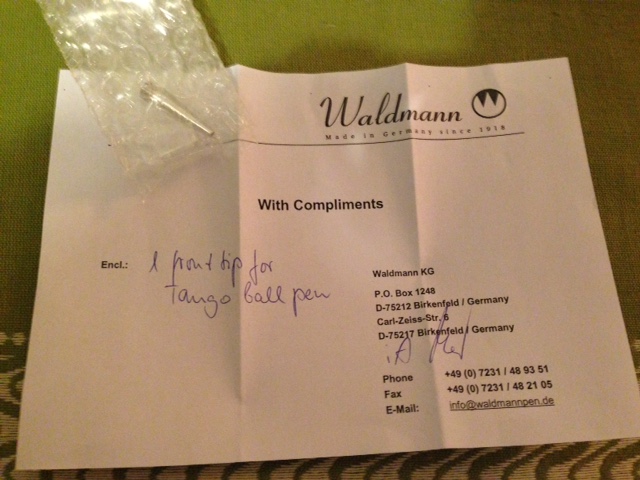 Waldmann
Made in Germany since 1918
With Compliments
Encl.: 1 front tip for
Tango ball pen
Waldmann KG
P.O. Box 1248
D-75212 Birkenfeld / Germany
Carl-Zeiss-Str. 6
D-75217 Birkenfeld / Germany
Phone +49 (0) 7231 / 48 93 51
Fax +49 (0) 7231 / 48 21 05
E-Mail: info@waldmannpen.de